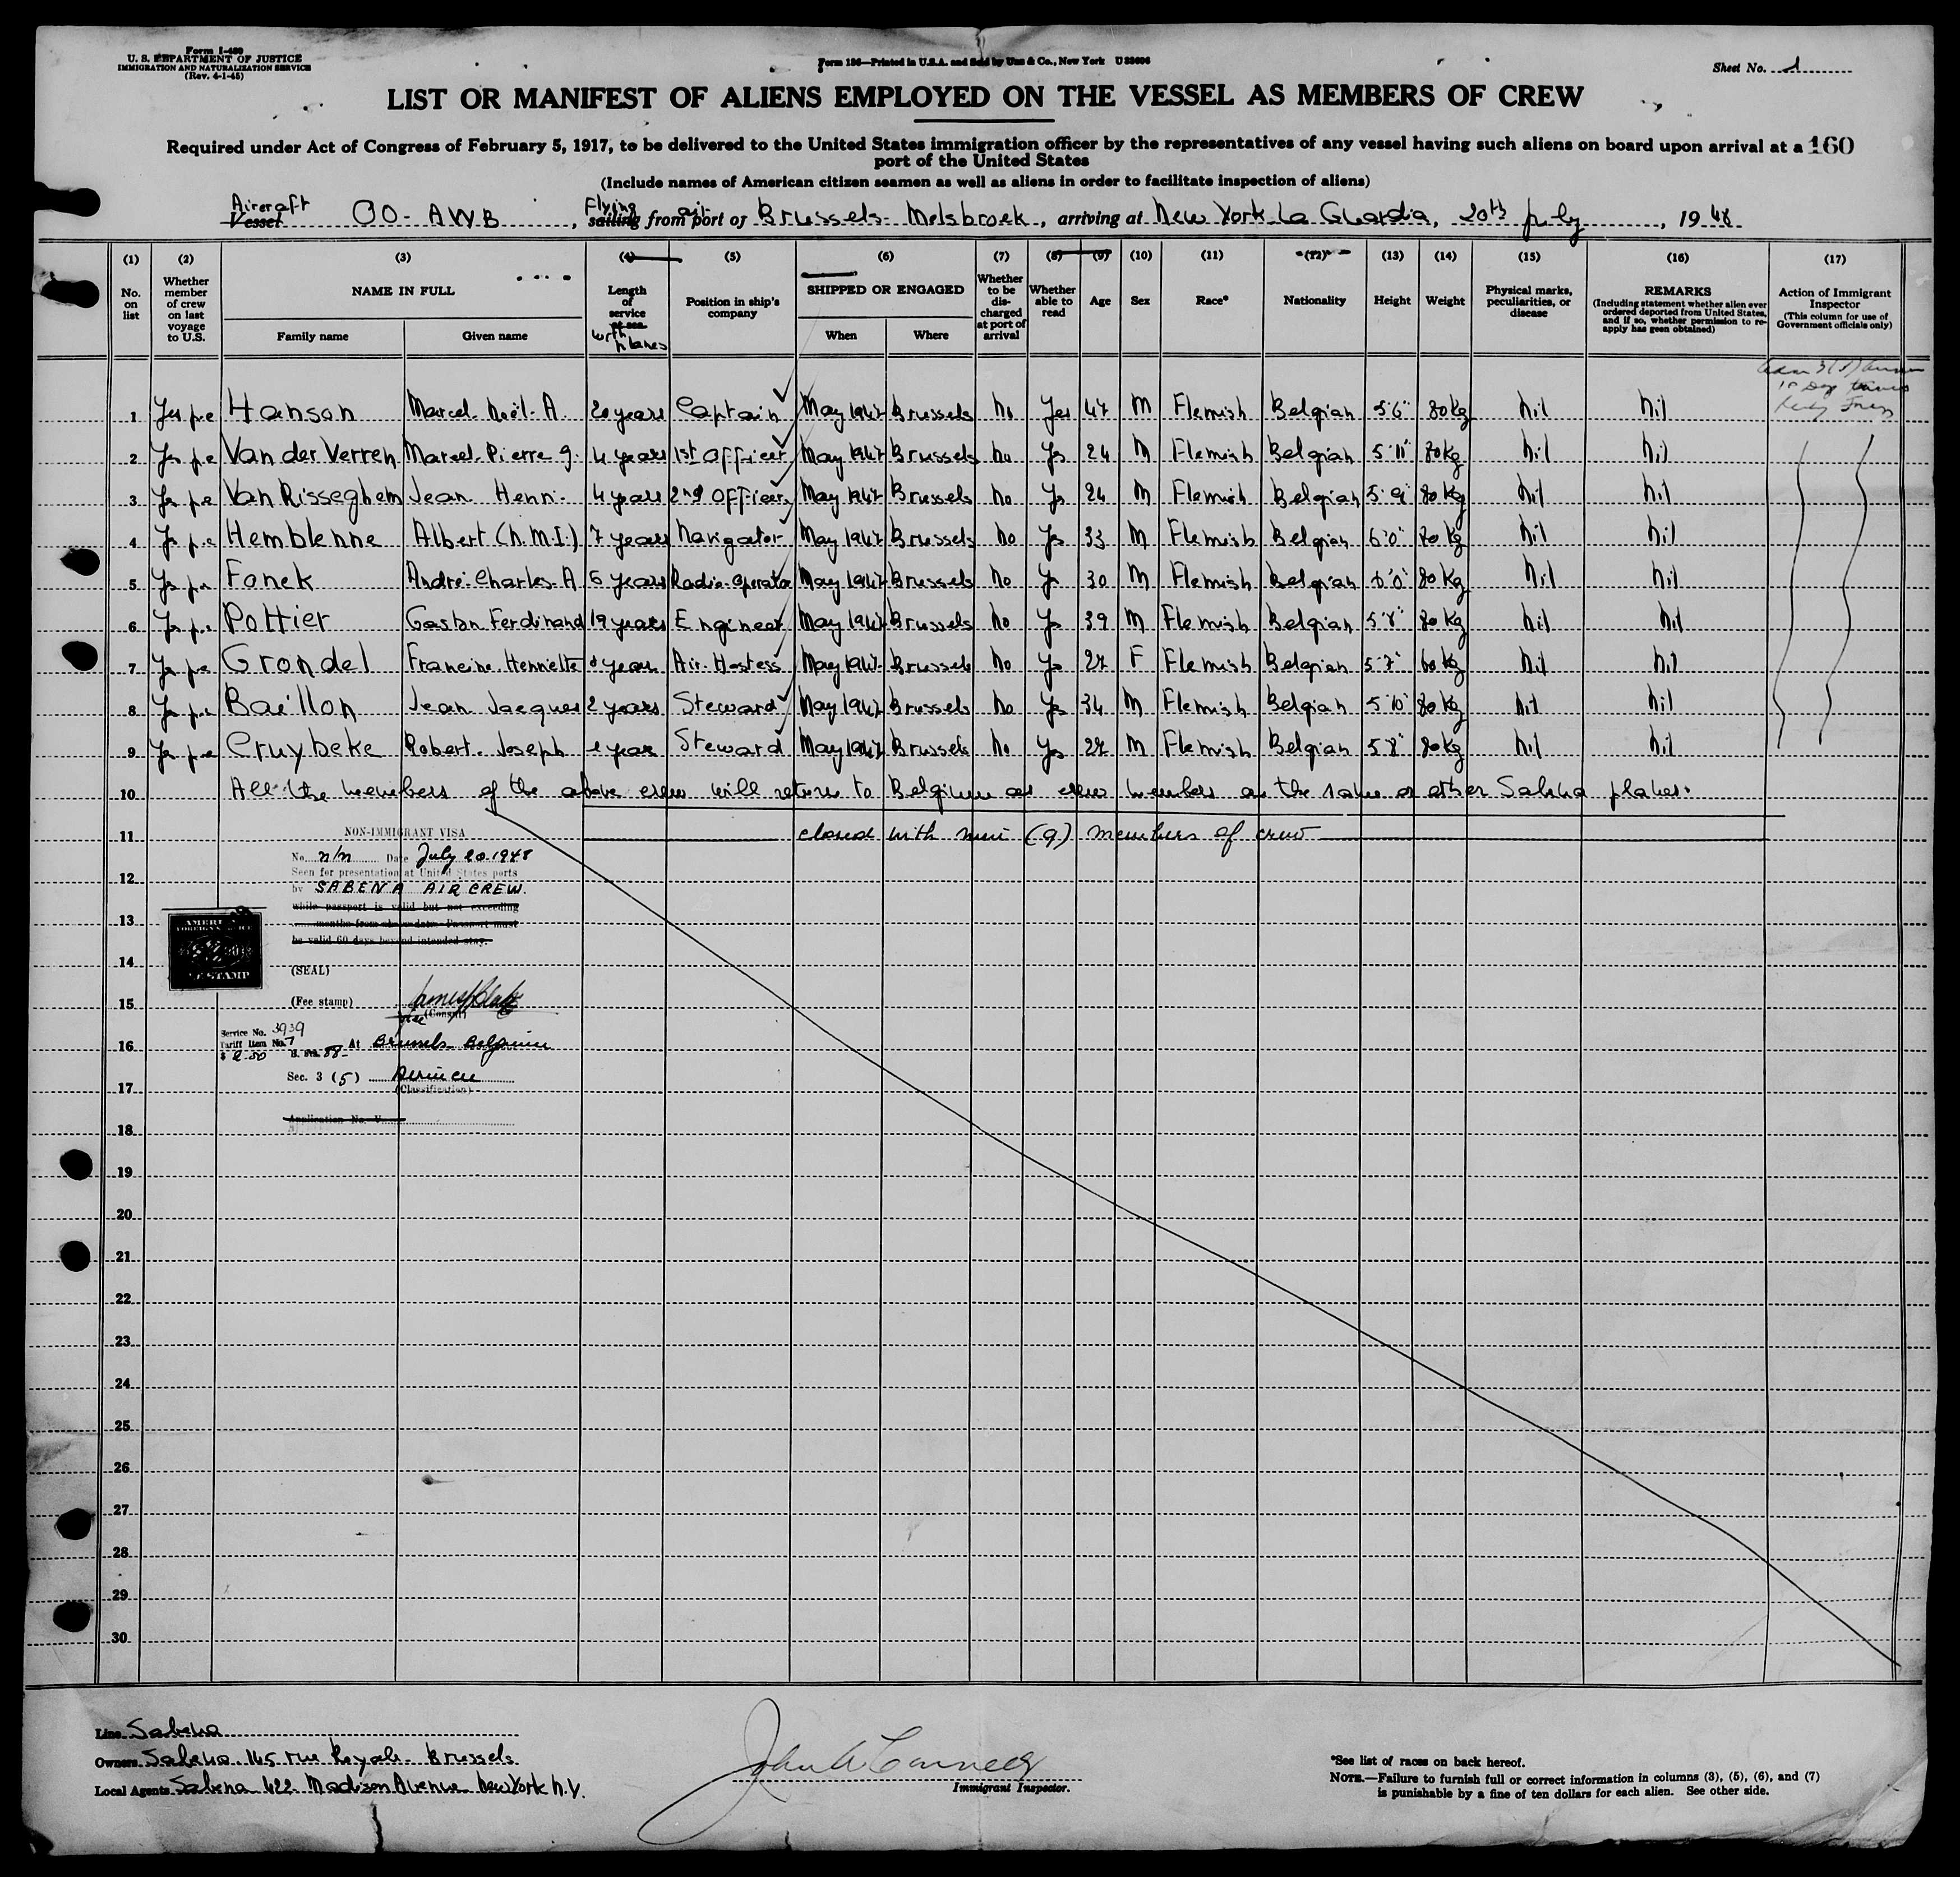 Form I-489
U. S. DEPARTMENT OF JUSTICE
IMMIGRATION AND NATURALIZATION SERVICE
(Rev. 4-1-45)
Form 186—Printed in U.S.A. and Sold by Unz & Co., New York
Sheet No. 1
LIST OR MANIFEST OF ALIENS EMPLOYED ON THE VESSEL AS MEMBERS OF CREW
Required under Act of Congress of February 5, 1917, to be delivered to the United States immigration officer by the representatives of any vessel having such aliens on board upon arrival at a 160
port of the United States
(Include names of American citizen seamen as well as aliens in order to facilitate inspection of aliens)
Aircraft Flying air
Vessel OO-AWB, sailing from port of Brussels-Melsbroek, arriving at New York La Guardia, 20th July, 1948
(1) (2) (3) (4) (5) (6) (7) (8) (9) (10) (11) (12) (13) (14) (15) (16) (17)
No. on list
Whether member of crew on last voyage to U.S.
NAME IN FULL
Family name Given name
Length of service at sea with planes
Position in ship's company
SHIPPED OR ENGAGED
When Where
Whether to be discharged at port of arrival
Whether able to read
Age Sex Race* Nationality Height Weight
Physical marks, peculiarities, or disease
REMARKS
(Including statement whether alien ever ordered deported from United States, and if so, whether permission to re-apply has geen obtained)
Action of Immigrant Inspector
(This column for use of Government officials only)
1 Yes p.e Hanson Marcel Noël A. 20 years Captain May 1947 Brussels No Yes 47 M Flemish Belgian 5'6" 80kg Nil Nil
2 Yes p.e Van der Verren Marcel Pierre G. 4 years 1st Officer May 1947 Brussels No Yes 24 M Flemish Belgian 5'11" 80kg Nil Nil
3 Yes p.e Van Risseghem Jean Henri 4 years 2nd Officer May 1947 Brussels No Yes 24 M Flemish Belgian 5'9" 80kg Nil Nil
4 Yes p.e Hemblenne Albert (N.M.I.) 7 years Navigator May 1947 Brussels No Yes 33 M Flemish Belgian 6'0" 80kg Nil Nil
5 Yes p.e Fanek André Charles A 6 years Radio Operator May 1947 Brussels No Yes 30 M Flemish Belgian 6'0" 80kg Nil Nil
6 Yes p.e Pottier Gaston Ferdinand 19 years Engineer May 1947 Brussels No Yes 39 M Flemish Belgian 5'8" 80kg Nil Nil
7 Yes p.e Grondel Francine Henriette year Air Hostess May 1947 Brussels No Yes 27 F Flemish Belgian 5'7" 60kg Nil Nil
8 Yes p.e Baillon Jean Jacques 2 years Steward May 1947 Brussels No Yes 34 M Flemish Belgian 5'10" 80kg Nil Nil
9 Yes p.e Cruybeke Robert Joseph year Steward May 1947 Brussels No Yes 27 M Flemish Belgian 5'8" 80kg Nil Nil
10 All the members of the above crew will return to Belgium as crew members on the same or other Sabena planes.
11 closed with nine (9) members of crew
NON-IMMIGRANT VISA
No. n/n Date July 20 1948
Seen for presentation at United States ports
12
by SABENA AIR CREW.
while passport is valid but not exceeding
13
months from above date. Passport must
be valid 60 days beyond intended stay.
14
(SEAL)
AMERICAN FOREIGN SERVICE
STAMP
15
(Fee stamp)
(Consul)
Service No. 3939
Tariff Item No. 7
$ 2.50
16 At Brussels Belgium
Sec. 3 (5)
17
(Classification)
Application No. V
18
19
20
21
22
23
24
25
26
27
28
29
30
Line Sabena
Owners Sabena 145 rue Royale Brussels
Local Agents Sabena 422 Madison Avenue New York N.Y.
Immigrant Inspector.
*See list of races on back hereof.
NOTE.—Failure to furnish full or correct information in columns (3), (5), (6), and (7)
is punishable by a fine of ten dollars for each alien. See other side.